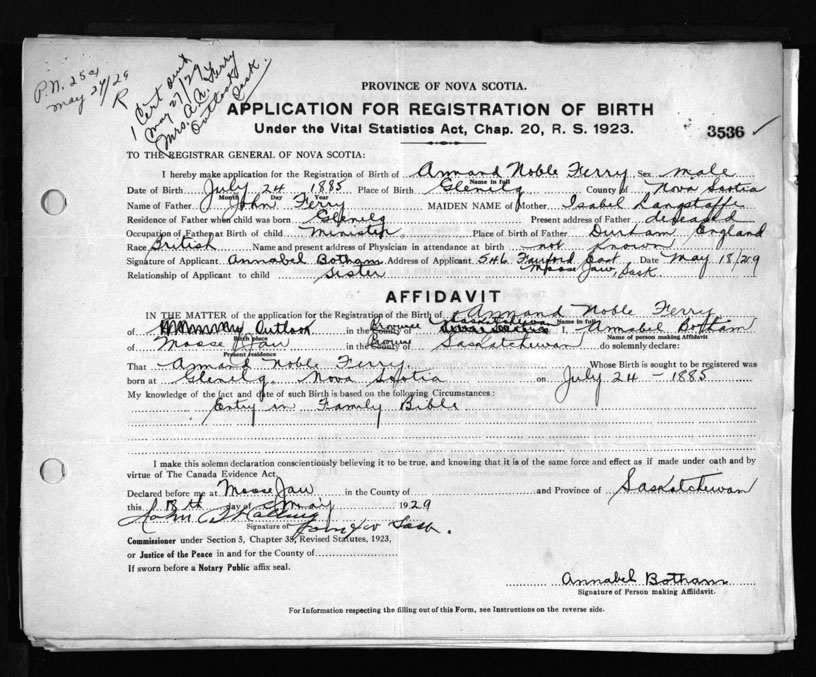 P.N. 25¢
May 27/29
R
1 Cert out
May 27/29
Mrs. A. N. Ferry
Outlook
Sask.
PROVINCE OF NOVA SCOTIA.
APPLICATION FOR REGISTRATION OF BIRTH
Under the Vital Statistics Act, Chap. 20, R. S. 1923.
3536
TO THE REGISTRAR GENERAL OF NOVA SCOTIA:
I hereby make application for the Registration of Birth of Armand Noble Ferry Sex male
Name in full
Date of Birth July 24 1885 Place of Birth Glenelg County of Nova Scotia
Month Day Year
Name of Father John Ferry MAIDEN NAME of Mother Isabel Langstaffe
Residence of Father when child was born Glenelg Present address of Father deceased
Occupation of Father at Birth of child Minister Place of birth of Father Durham, England
Race British Name and present address of Physician in attendance at birth not known
Signature of Applicant Annabel Botham Address of Applicant 546 Fairford East Date May 18/29
Moose Jaw, Sask.
Relationship of Applicant to child Sister
AFFIDAVIT
IN THE MATTER of the application for the Registration of the Birth of Armand Noble Ferry
Name in full
of Outlook in the County of Province Saskatchewan I, Annabel Botham
Birth place Name of person making Affidavit
of Moose Jaw in the County of Province Saskatchewan do solemnly declare:
Present residence
That Armand Noble Ferry Whose Birth is sought to be registered was
born at Glenelg, Nova Scotia on July 24 - 1885
My knowledge of the fact and date of such Birth is based on the following Circumstances:
Entry in Family Bible
I make this solemn declaration conscientiously believing it to be true, and knowing that it is of the same force and effect as if made under oath and by
virtue of The Canada Evidence Act.
Declared before me at Moose Jaw in the County of and Province of Saskatchewan
this 18th day of May 1929
John
Signature of
for Sask.
Commissioner under Section 5, Chapter 38, Revised Statutes, 1923,
or Justice of the Peace in and for the County of
If sworn before a Notary Public affix seal.
Annabel Botham
Signature of Person making Affidavit.
For Information respecting the filling out of this Form, see Instructions on the reverse side.